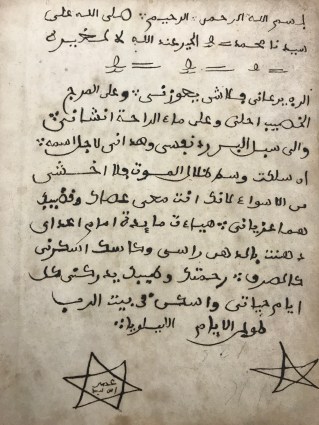 بسم الله الرحمن الرحيم صلى الله على
سيدنا محمد الخير عند الله لا
الرب يرعاني فلا شي يعوزني وعلى المرج
الخصيب احلني وعلى ماء الراحة انشاني
والى سبل البر رد نفسي وهداني لاجل اسمه
ان سلكت وسط ظلال الموت فلا اخشى
من الاسواء لانك انت معي عصاك وقضيبك
هما عزياني هيات مايدة امام اعداي
دهنت بالدهن راسي وكاسك اسكرني
كالصرف رحمتك وطيبك يدركني كل
ايام حياتي واسكن في بيت الرب
طول الايام الليلويا